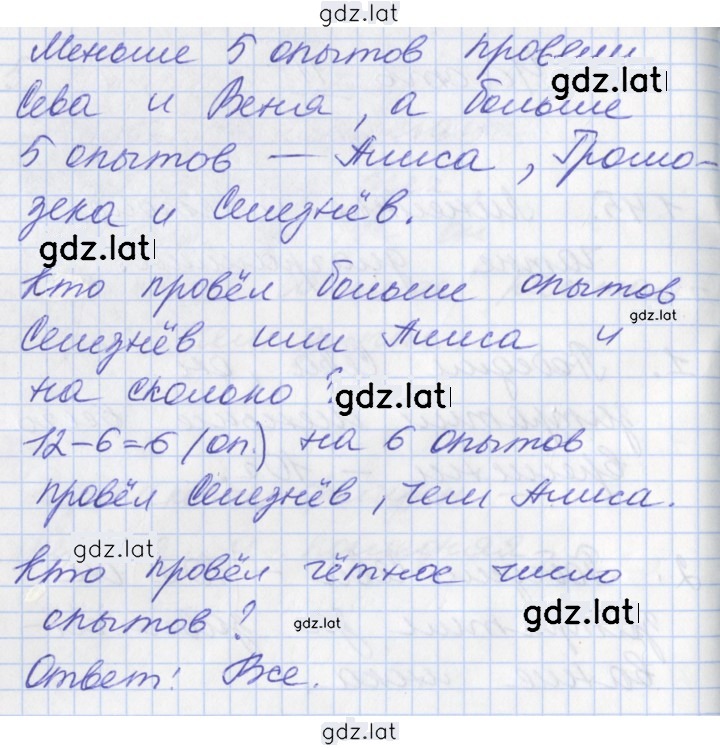 gdz.lat
Меньше 5 опытов провели
gdz.lat
Сева и Веня, а больше
5 опытов — Алиса, Громо-
зека и Селезнёв.
gdz.lat
Кто провёл больше опытов
gdz.lat
Селезнёв или Алиса и
на сколько?
gdz.lat
12-6=6 (оп.) на 6 опытов
провёл Селезнёв, чем Алиса.
gdz.lat
Кто провёл чётное число
опытов?
gdz.lat
gdz.lat
Ответ: Все.
gdz.lat